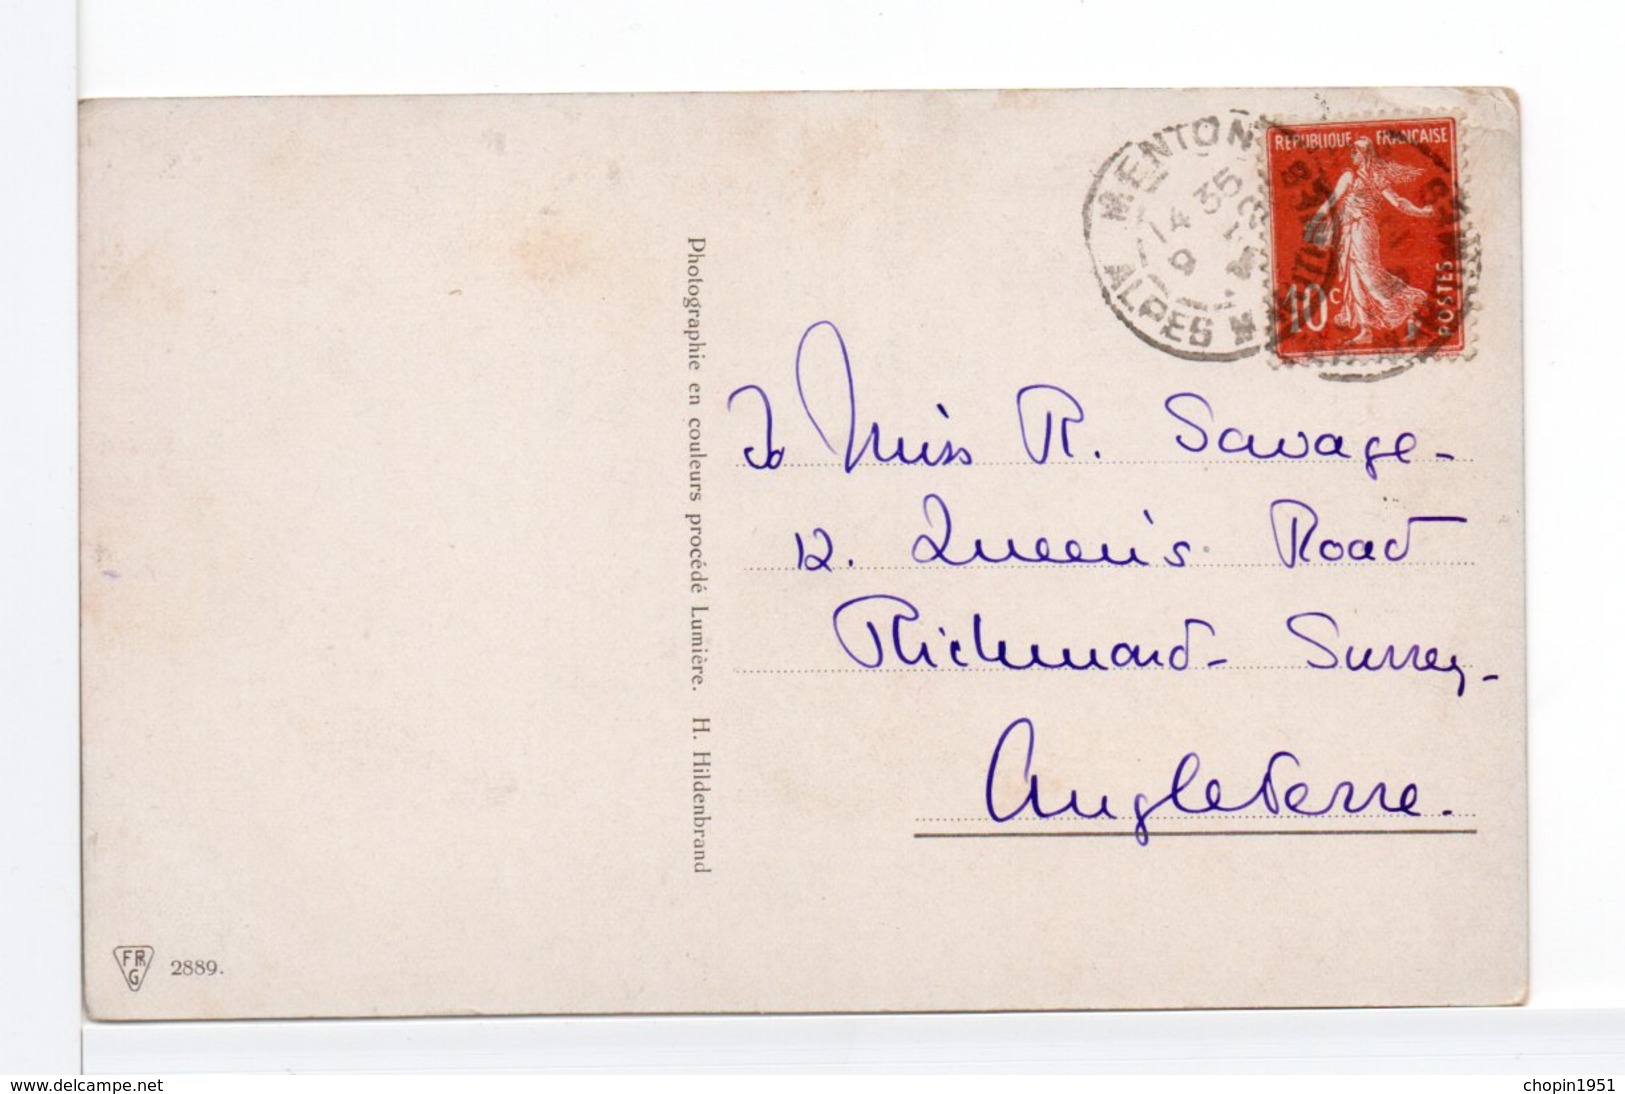 MENTON
14 35
ALPES M
REPUBLIQUE FRANÇAISE
10c
POSTES
To Miss R. Savage-
12. Queen's Road
Richmond- Surrey-
Angleterre.
Photographie en couleurs procédé Lumière. H. Hildenbrand
FPhG 2889.
www.delcampe.net
chopin1951